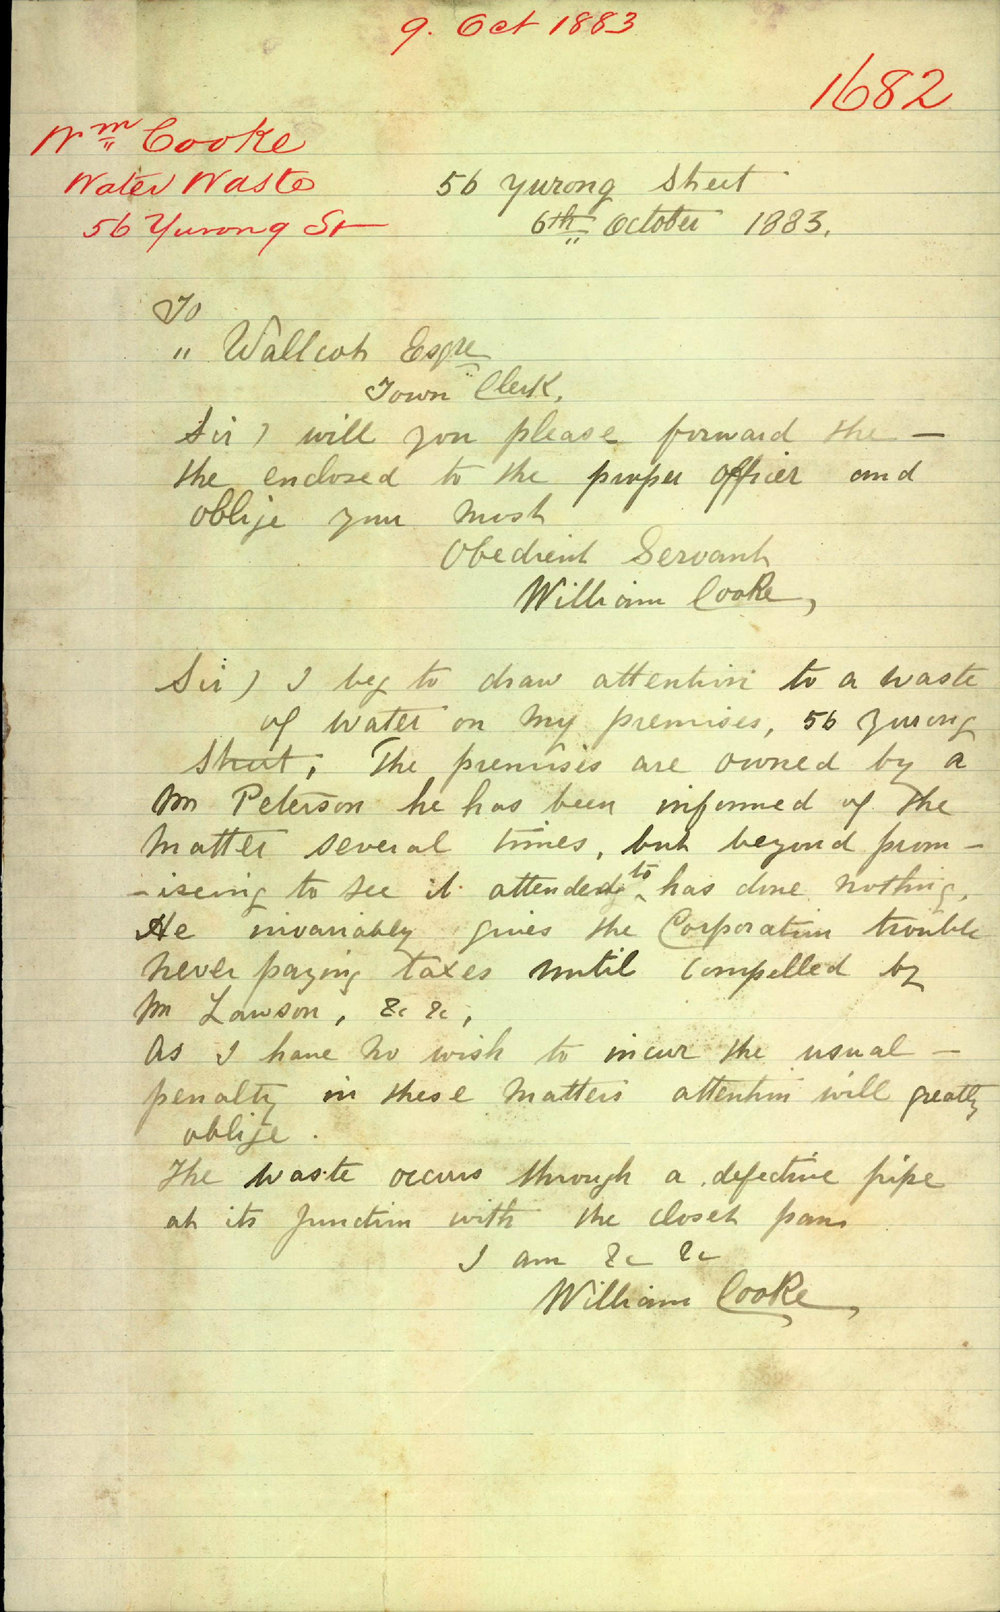 9. Oct 1883
1682
Wm Cooke
Water Waste
56 Yurong St
56 Yurong Street
6th October 1883.
To
" Wallcot Esqre
Town Clerk.
Sir) will you please forward the —
the enclosed to the proper officer and
oblige your most
Obedient Servant
William Cooke,
Sir) I beg to draw attention to a waste
of water on my premises, 56 Yurong
Street; The premises are owned by a
Mr Peterson he has been informed of the
matter several times, but beyond prom-
-iseing to see it attended to has done nothing.
He invariably gives the Corporation trouble
never paying taxes until compelled by
Mr Lawson, &c &c,
As I have no wish to incur the usual —
penalty in these matters attention will greatly
oblige.
The waste occurs through a defective pipe
at its junction with the closet pan
I am &c &c
William Cooke,